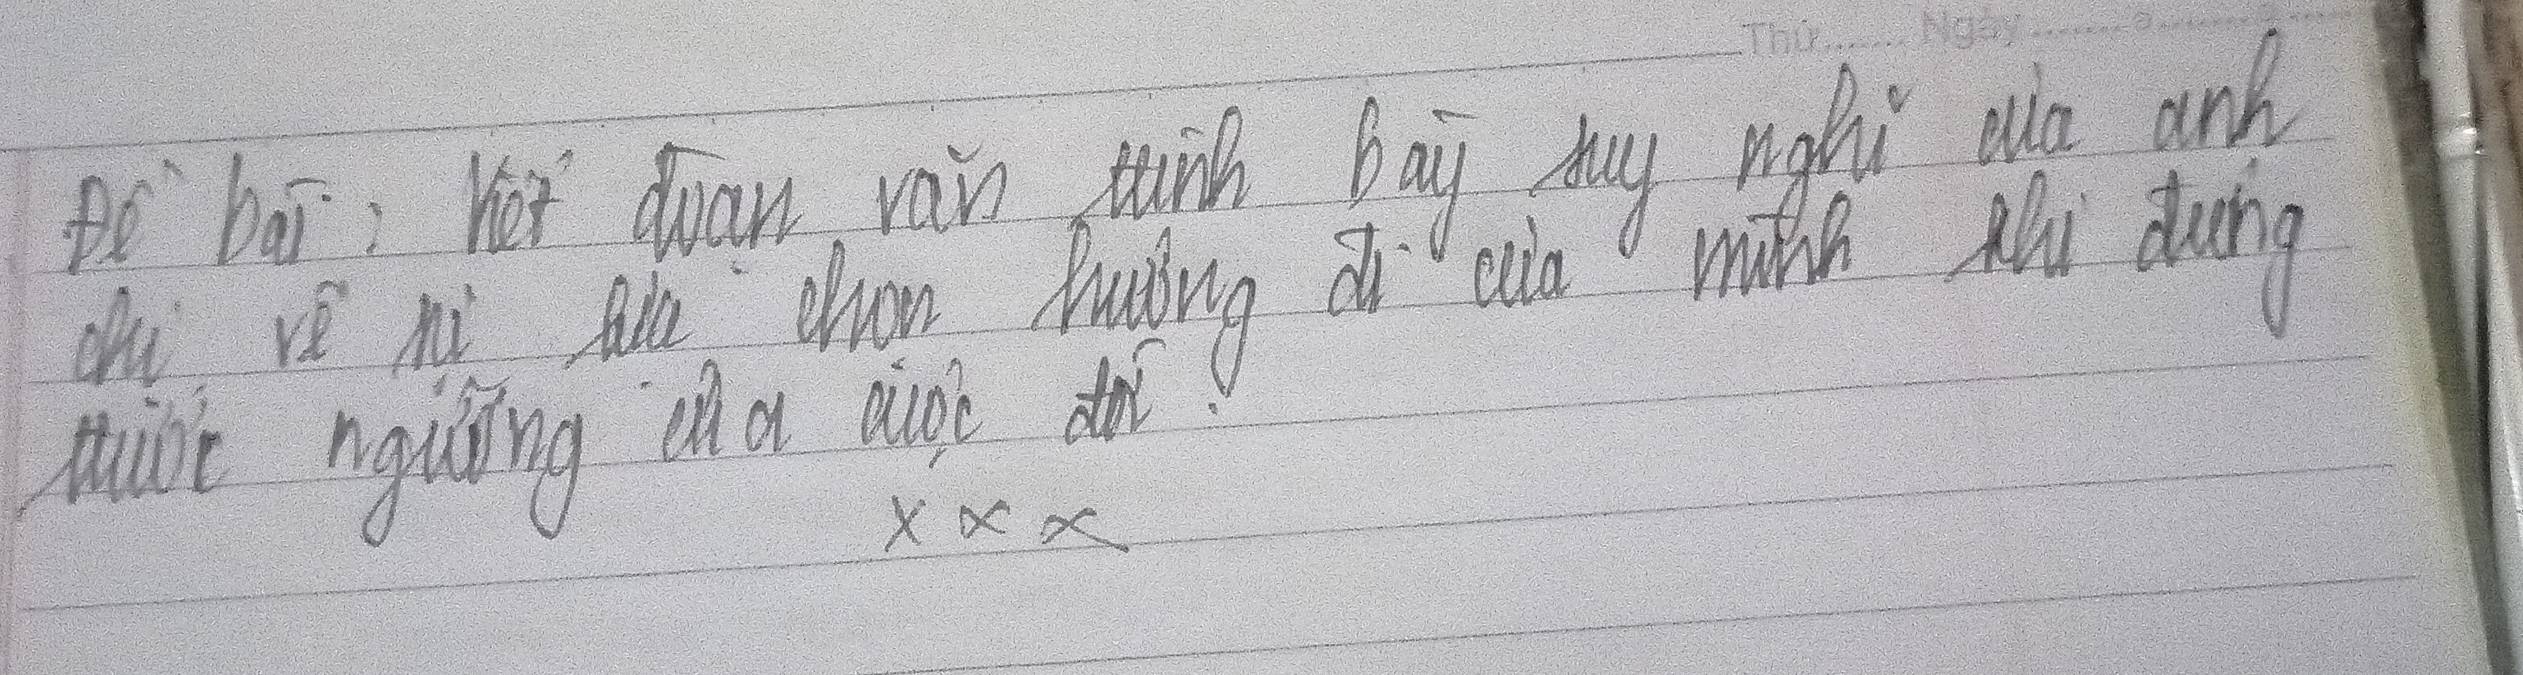 Thứ....... Ngày ................
Đề bài: Viết đoạn văn trình bày suy nghĩ của anh
chị về sự lựa chọn hướng đi của mình khi đứng
trước ngưỡng cửa cuộc đời.
x x x